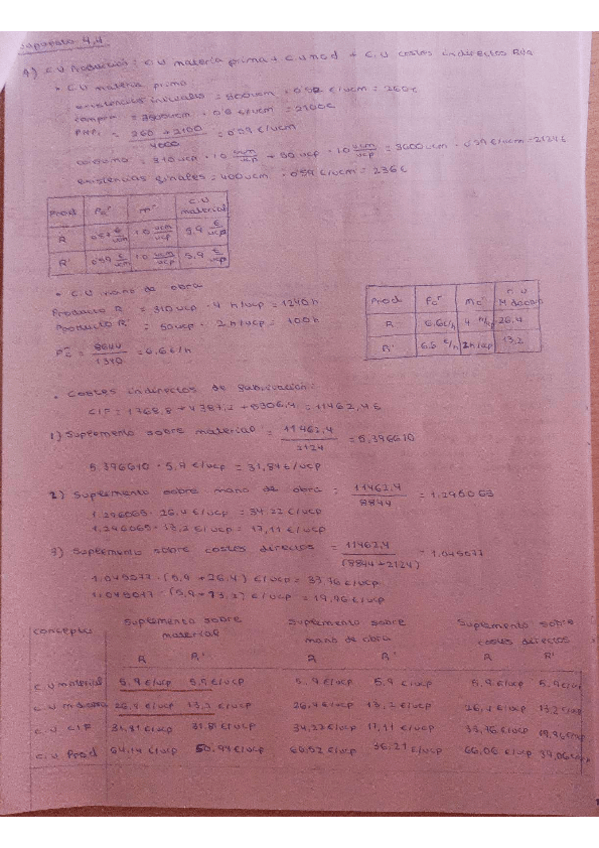 Supuesto 4.4
A) C.U Producción: C.U materia prima + C.U mod + C.U costes indirectos
• C.U materia prima:
existencias iniciales = 500 ucm · €/ucm = 260€
compra = 3500ucm · 0'6 €/ucm = 2100€
= 260 + 2100 / 4000 = 0'59 €/ucm
consumo = 310 ucp · 10 ucm/ucp + 50 ucp · 10 ucm/ucp = 3600 ucm · 0'59 €/ucm = 2124€
existencias finales = 400 ucm · 0'59 €/ucm = 236€
Prod C.U material
R 0'59 €/ucm 10 ucm/ucp 5,9 €/ucp
R' 0'59 €/ucm 10 ucm/ucp 5,9 €/ucp
• C.U mano de obra
Producto R = 310 ucp · 4 h/ucp = 1240 h
Producto R' = 50 ucp · 2 h/ucp = 100 h
= 8844 / 1340 = 6.6 €/h
Prod
R 6.6 €/h 4 h/ucp 26.4
R' 6.6 €/h 2 h/ucp 13.2
• Costes indirectos de fabricación:
CIF = 1768,8 + + 5306,4 = 11462,4€
1) Suplemento sobre material = 11462,4 / 2124 = 5,396610
5.396610 · 5,9 €/ucp = 31,84 €/ucp
2) Suplemento sobre mano de obra = 11462,4 / 8844 =
· 26,4 €/ucp = 34'22 €/ucp
· 13,2 €/ucp = 17,11 €/ucp
3) Suplemento sobre costes directos = 11462,4 / (8844 + 2124) =
· (5,9 + 26,4) €/ucp = 33'76 €/ucp
· (5,9 + 13,2) €/ucp = 19,96 €/ucp
Conceptos Suplemento sobre material Suplemento sobre mano de obra Suplemento sobre costes directos
R R' R R' R R'
C.U material 5,9 €/ucp 5,9 €/ucp 5,9 €/ucp 5,9 €/ucp 5,9 €/ucp 5,9 €/ucp
26,4 €/ucp 13,2 €/ucp 26,4 €/ucp 13,2 €/ucp 26,4 €/ucp 13,2 €/ucp
C.U CIF 31,84 €/ucp 31,84 €/ucp 34,22 €/ucp 17,11 €/ucp 33,76 €/ucp 19,96 €/ucp
C.U Prod 64,14 €/ucp 50,94 €/ucp 66,52 €/ucp 36,21 €/ucp 66,06 €/ucp 39,06 €/ucp